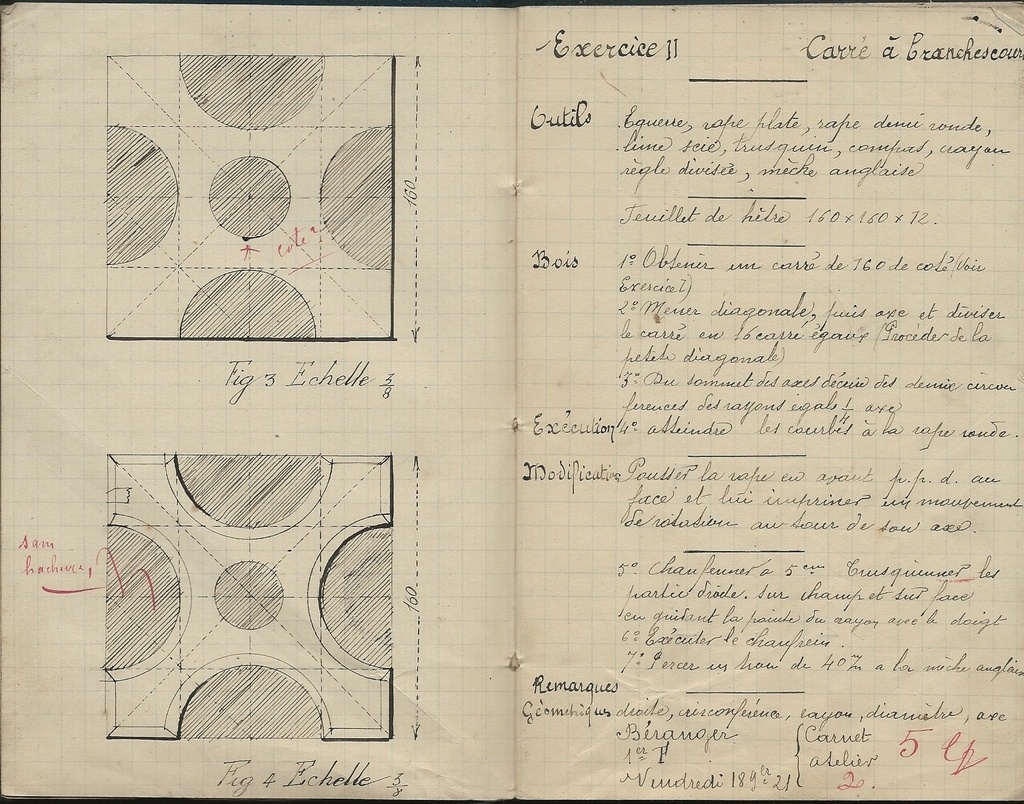 160
cote ?
Fig 3 Echelle 3/8
sans
hachure,
160
Fig 4 Echelle 3/8
Exercice II Carré à branchescour
Outils Equerre, rape plate, rape demi ronde,
lime scie, trusquin, compas, crayon
règle divisée, mèche anglaise
Feuillet de hêtre 160 x 160 x 12.
Bois 1º Obtenir un carré de 160 de coté (Voir
Exercice I)
2º Mener diagonale, puis axe et diviser
le carré en 16 carré égaux (Procéder de la
petite diagonale)
3º Du sommet des axes décrire des demie circon
ferences des rayons égals 1/4 axe
Exécution 4º atteindre les courbes à la rape ronde.
Modificative Pousser la rape en avant p.p.d. au
face et lui imprimer un mouvement
de rotation au tour de son axe.
5º Chanfeinner à 5 cm Trusquinner les
partie droite. sur champ et sur face
en guidant la pointe du crayon avec le doigt
6º Exécuter le chanfrein.
7º Percer un trou de 40 a la mèche anglais
Remarques
Géométriques droite, circonférence, rayon, diamètre, axe
Béranger Carnet
1er F atelier 5
Vendredi 18 9bre 21 2